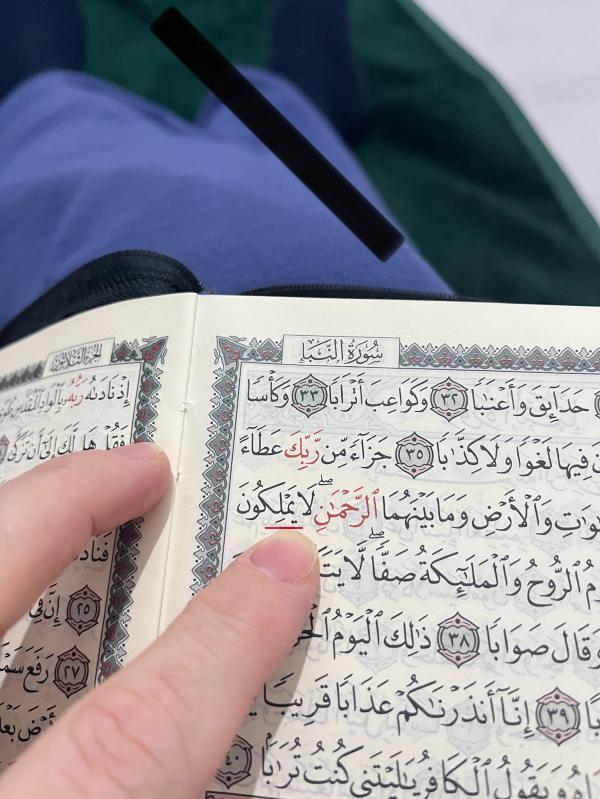 سُورَةُ النَّبَإِ
حَدَآئِقَ وَأَعْنَٰبًا ٣٢ وَكَوَاعِبَ أَتْرَابًا ٣٣ وَكَأْسًا
فِيهَا لَغْوًا وَلَا كِذَّٰبًا ٣٥ جَزَآءً مِّن رَّبِّكَ عَطَآءً
وَٰتِ وَٱلْأَرْضِ وَمَا بَيْنَهُمَا ٱلرَّحْمَٰنِ ۖ لَا يَمْلِكُونَ
مُ ٱلرُّوحُ وَٱلْمَلَٰٓئِكَةُ صَفًّا ۖ لَّا يَتَ
وَقَالَ صَوَابًا ٣٨ ذَٰلِكَ ٱلْيَوْمُ ٱلْحَ
بًا ٣٩ إِنَّآ أَنذَرْنَٰكُمْ عَذَابًا قَرِيبًا
اهُ وَيَقُولُ ٱلْكَافِرُ يَٰلَيْتَنِى كُنتُ تُرَٰبًۢا ٤٠
الجُزْءُ الثَّلَاثُونَ
إِذْ نَادَىٰهُ رَبُّهُۥ بِٱلْوَادِ ٱلْمُقَدَّسِ
فَقُلْ هَل لَّكَ إِلَىٰٓ أَن تَزَكَّىٰ
فَنَادَ
٢٥ إِنَّ فِى
٢٧ رَفَعَ سَمْ